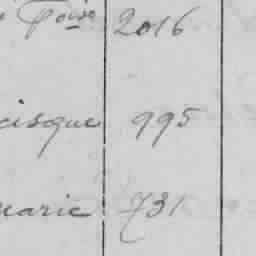 Poise 2016
cisque 995
marie 731